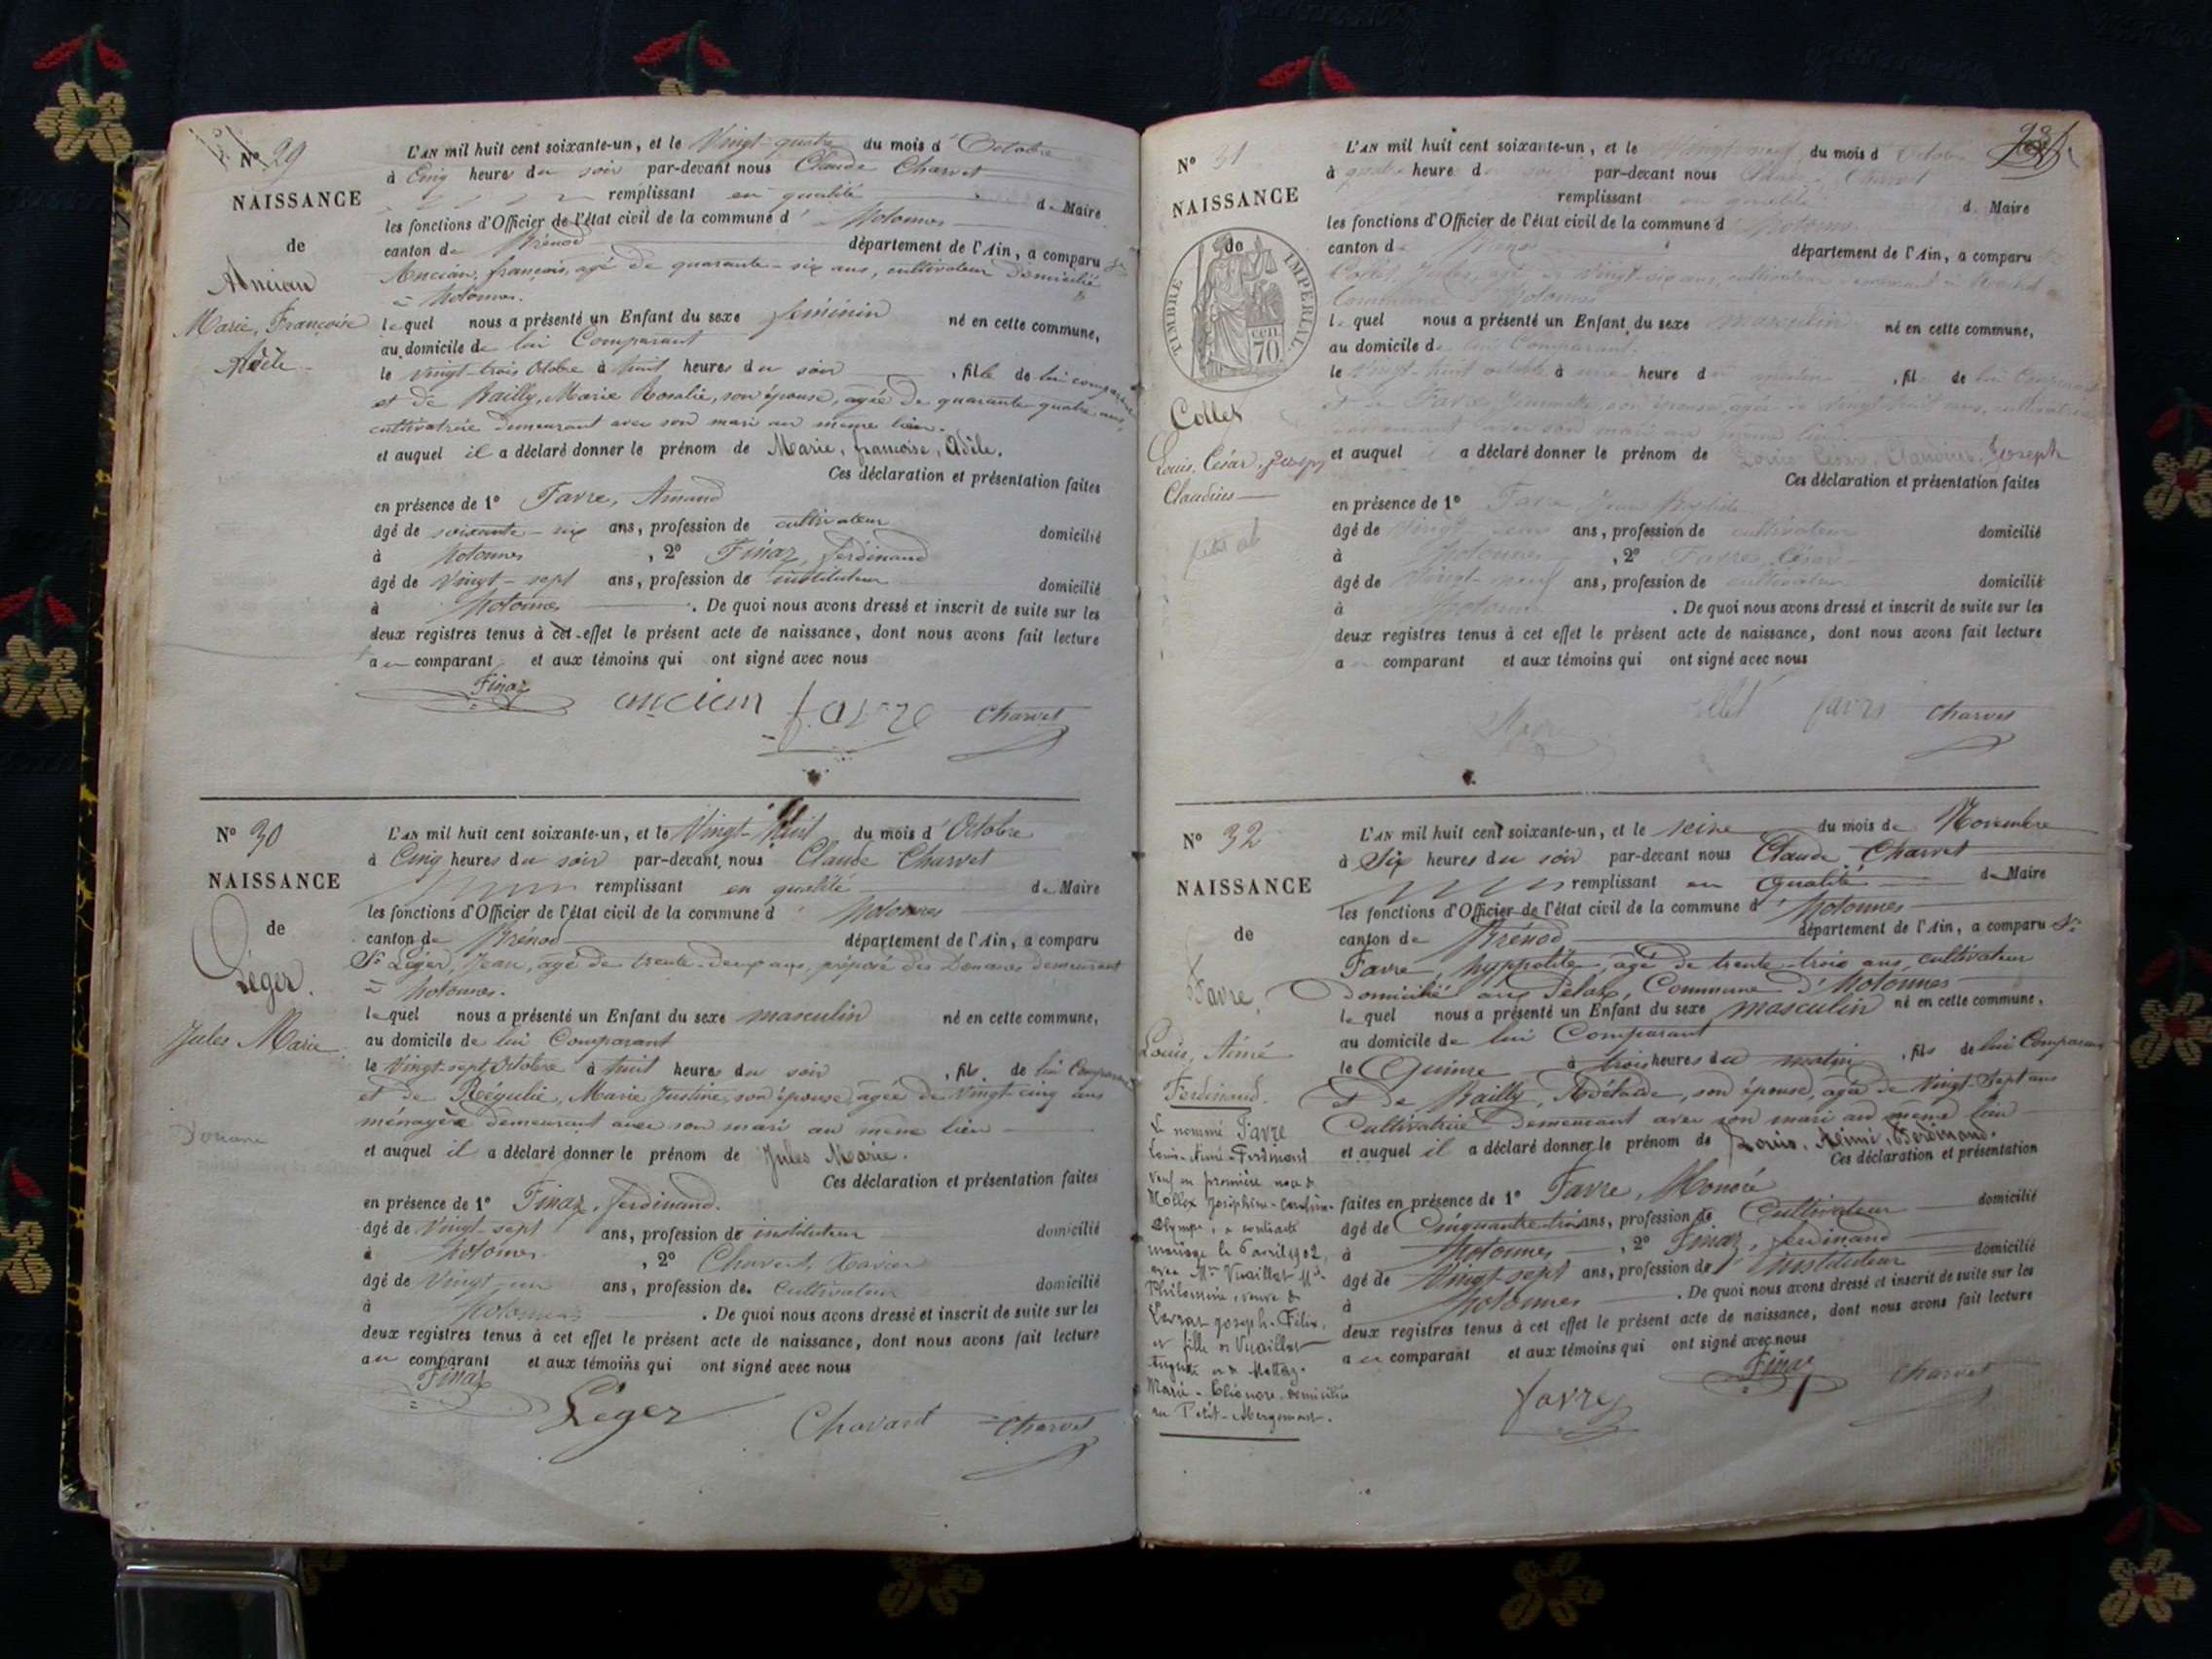 Nº 29
NAISSANCE
de
Ancian
Marie, Françoise
Adèle
L'AN mil huit cent soixante-un, et le Vingt-quatre du mois d'Octobre
à Cinq heures du soir par-devant nous Claude Charvet
remplissant en qualité de Maire
les fonctions d'Officier de l'état civil de la commune d'hotonnes
canton de Brénod département de l'Ain, a comparu
Ancian, françois, agé de quarante-six ans, cultivateur domicilié
à hotonnes.
lequel nous a présenté un Enfant du sexe féminin né en cette commune,
au domicile de lui Comparant
le vingt-trois Octobre à huit heures du soir, fille de lui comparant
et de Bailly, Marie Rosalie, son épouse, agée de quarante-quatre ans,
cultivatrice demeurant avec son mari au même lieu.
et auquel il a déclaré donner le prénom de Marie, françoise, Adèle.
Ces déclaration et présentation faites
en présence de 1º Favre, Amand
âgé de soixante-six ans, profession de cultivateur domicilié
à hotonnes, 2º Finaz, ferdinand
âgé de Vingt-sept ans, profession de instituteur domicilié
à hotonnes. De quoi nous avons dressé et inscrit de suite sur les
deux registres tenus à cet effet le présent acte de naissance, dont nous avons fait lecture
au comparant et aux témoins qui ont signé avec nous
Finaz ancian favre Charvet
Nº 30
NAISSANCE
de
Léger.
Jules Marie
Douane
L'AN mil huit cent soixante-un, et le Vingt-huit du mois d'Octobre
à Cinq heures du soir par-devant nous Claude Charvet
remplissant en qualité de Maire
les fonctions d'Officier de l'état civil de la commune d'hotonnes
canton de Brénod département de l'Ain, a comparu
Sr Léger, Jean, agé de trente-deux ans, préposé des Douanes demeurant
à hotonnes.
lequel nous a présenté un Enfant du sexe masculin né en cette commune,
au domicile de lui Comparant
le Vingt-sept Octobre à huit heures du soir, fils de lui Comparant
et de Régulie, Marie Justine, son épouse, agée de Vingt-cinq ans
ménagère demeurant avec son mari au même lieu
et auquel il a déclaré donner le prénom de Jules Marie.
Ces déclaration et présentation faites
en présence de 1º Finaz, ferdinand.
âgé de Vingt-sept ans, profession de instituteur domicilié
à hotonnes, 2º Xavier
âgé de Vingt-un ans, profession de Cultivateur domicilié
à hotonnes. De quoi nous avons dressé et inscrit de suite sur les
deux registres tenus à cet effet le présent acte de naissance, dont nous avons fait lecture
au comparant et aux témoins qui ont signé avec nous
Finaz Léger Chavant Charvet
Nº 31
NAISSANCE
de
TIMBRE IMPERIAL
cen
70
Collet
Louis, César, Joseph
Claudius
L'AN mil huit cent soixante-un, et le Vingt-neuf du mois d'Octobre
à quatre heures du soir par-devant nous Claude Charvet
remplissant en qualité de Maire
les fonctions d'Officier de l'état civil de la commune d'hotonnes
canton de Brénod département de l'Ain, a comparu
Collet, Jules, agé de Vingt-six ans, cultivateur demeurant à
Commune d'hotonnes
lequel nous a présenté un Enfant du sexe masculin né en cette commune,
au domicile de lui Comparant.
le Vingt-huit octobre à une heure du matin, fils de lui Comparant
et de Favre Jeannette, son épouse, agée de Vingt-huit ans, cultivatrice
demeurant avec son mari au même lieu.
et auquel il a déclaré donner le prénom de Louis César, Claudius, Joseph
Ces déclaration et présentation faites
en présence de 1º Favre Jean
âgé de Vingt ans, profession de cultivateur domicilié
à hotonnes, 2º Favre, César
âgé de Vingt-neuf ans, profession de cultivateur domicilié
à hotonnes. De quoi nous avons dressé et inscrit de suite sur les
deux registres tenus à cet effet le présent acte de naissance, dont nous avons fait lecture
au comparant et aux témoins qui ont signé avec nous
Favre Collet favre Charvet
Nº 32
NAISSANCE
de
Favre,
Louis, Aimé
Ferdinand.
Le nommé Favre
Louis-Aimé-Ferdinand
Veuf en première noce de
Mollex Joséphine-Caroline-
Olympe, a contracté
mariage le 6 avril 1902,
avec Mme Vuaillat Mie
Philomène, veuve de
Joseph-Félix,
et fille de Vuaillat
et de
Marie-Eléonore, domiciliée
au Petit-Abergement.
L'AN mil huit cent soixante-un, et le seize du mois de Novembre
à Six heures du soir par-devant nous Claude Charvet
remplissant en qualité de Maire
les fonctions d'Officier de l'état civil de la commune d'hotonnes
canton de Brénod département de l'Ain, a comparu Sr
Favre, hyppolite, agé de trente-trois ans, cultivateur
domicilié aux Pelaz, Commune d'hotonnes
lequel nous a présenté un Enfant du sexe masculin né en cette commune,
au domicile de lui Comparant
le Quinze à trois heures du matin, fils de lui Comparant
et de Bailly, Adélaïde, son épouse, agée de Vingt-Sept ans
Cultivatrice demeurant avec son mari au même lieu
et auquel il a déclaré donner le prénom de Louis, Aimé, Ferdinand.
Ces déclaration et présentation
faites en présence de 1º Favre, Honoré domicilié
âgé de Cinquante-trois ans, profession de Cultivateur
à hotonnes, 2º Finaz, ferdinand domicilié
âgé de Vingt-sept ans, profession de instituteur
à hotonnes. De quoi nous avons dressé et inscrit de suite sur les
deux registres tenus à cet effet le présent acte de naissance, dont nous avons fait lecture
au comparant et aux témoins qui ont signé avec nous
favre Finaz Charvet